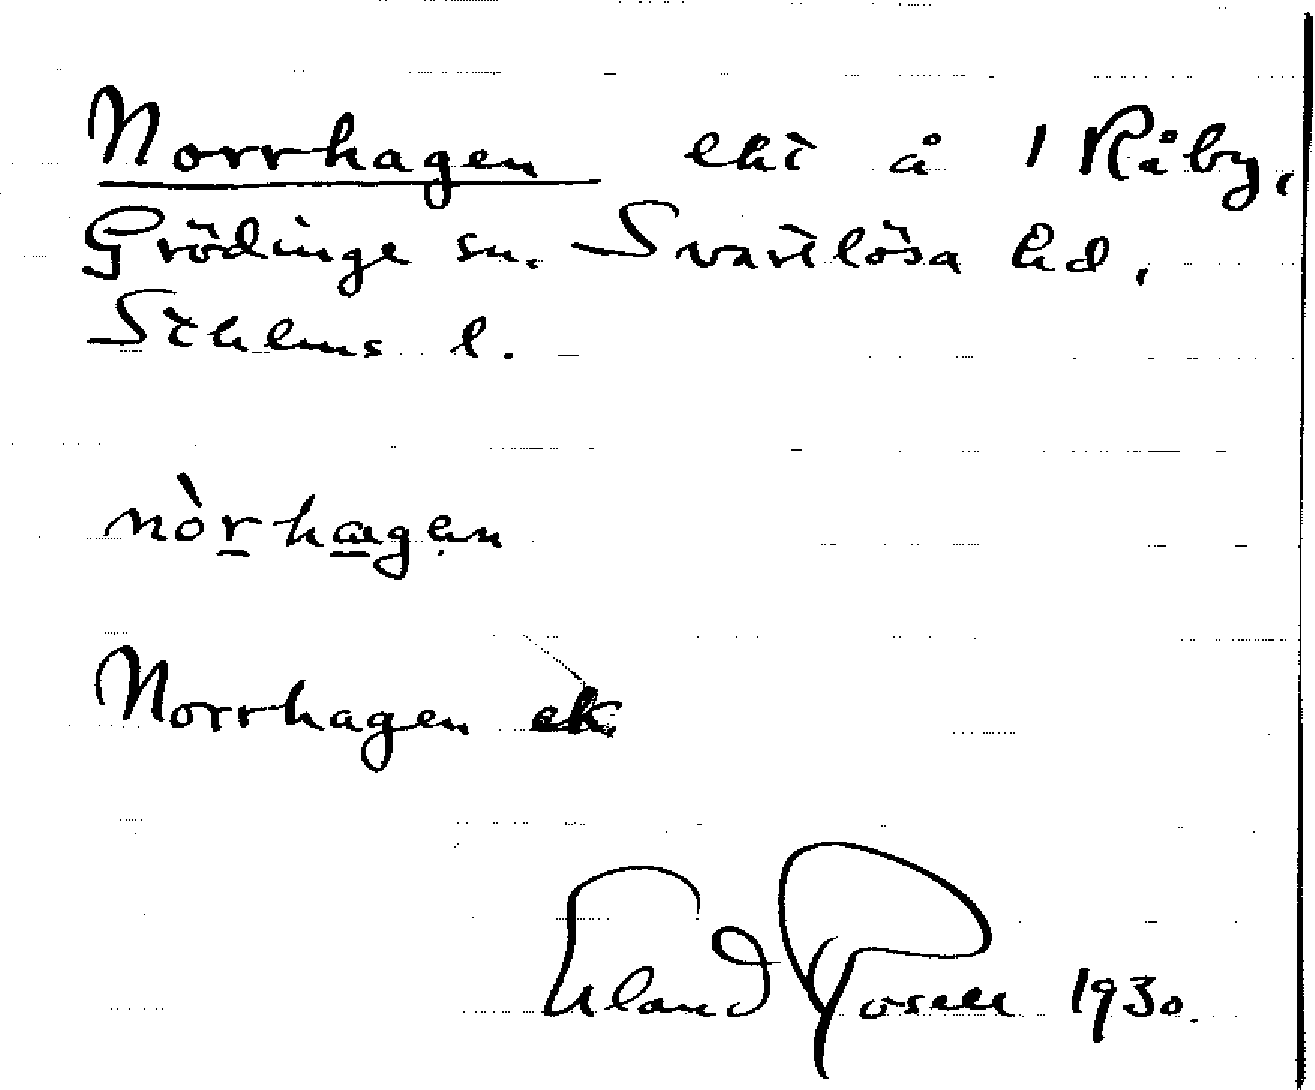 Norrhagen ekt å 1 Råby,
Grödinge sn. Svartlösa hd,
Sthlms l.
nòrhagen
Norrhagen ek.
Erland Rosell 1930.